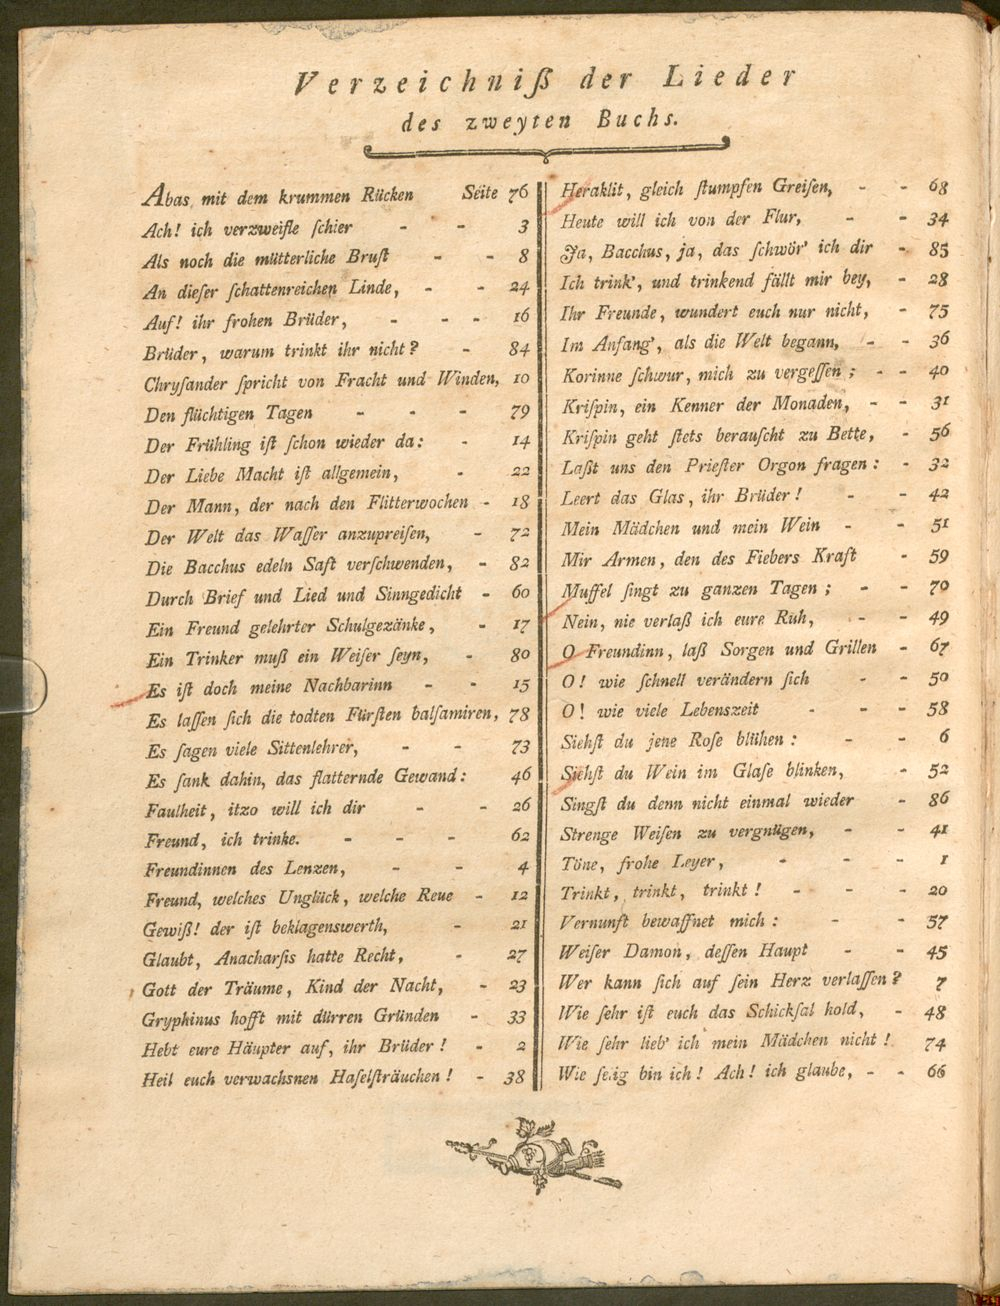 Verzeichniß der Lieder
des zweyten Buchs.
Abas, mit dem krummen Rücken Seite 76
Ach! ich verzweifle ſchier - - 3
Als noch die mütterliche Bruſt - - 8
An dieſer ſchattenreichen Linde, - - 24
Auf! ihr frohen Brüder, - - - 16
Brüder, warum trinkt ihr nicht? - 84
Chryſander ſpricht von Fracht und Winden, 10
Den flüchtigen Tagen - - - 79
Der Frühling iſt ſchon wieder da: - 14
Der Liebe Macht iſt allgemein, - 22
Der Mann, der nach den Flitterwochen - 18
Der Welt das Waſſer anzupreiſen, - 72
Die Bacchus edeln Saft verſchwenden, - 82
Durch Brief und Lied und Sinngedicht - 60
Ein Freund gelehrter Schulgezänke, - 17
Ein Trinker muß ein Weiſer ſeyn, - 80
Es iſt doch meine Nachbarinn - - 15
Es laſſen ſich die todten Fürſten balſamiren, 78
Es ſagen viele Sittenlehrer, - - 73
Es ſank dahin, das flatternde Gewand: 46
Faulheit, itzo will ich dir - - 26
Freund, ich trinke. - - - 62
Freundinnen des Lenzen, - - 4
Freund, welches Unglück, welche Reue - 12
Gewiß! der iſt beklagenswerth, - 21
Glaubt, Anacharſis hatte Recht, - 27
Gott der Träume, Kind der Nacht, - 23
Gryphinus hofft mit dürren Gründen - 33
Hebt eure Häupter auf, ihr Brüder! - 2
Heil euch verwachsnen Haſelſträuchen! - 38
Heraklit, gleich ſtumpfen Greiſen, - - 68
Heute will ich von der Flur, - - 34
Ja, Bacchus, ja, das ſchwör' ich dir - 85
Ich trink', und trinkend fällt mir bey, - 28
Ihr Freunde, wundert euch nur nicht, - 75
Im Anfang', als die Welt begann, - - 36
Korinne ſchwur, mich zu vergeſſen; - - 40
Kriſpin, ein Kenner der Monaden, - - 31
Kriſpin geht ſtets berauſcht zu Bette, - 56
Laßt uns den Prieſter Orgon fragen: - 32
Leert das Glas, ihr Brüder! - - 42
Mein Mädchen und mein Wein - - 51
Mir Armen, den des Fiebers Kraft - 59
Muffel ſingt zu ganzen Tagen; - - 70
Nein, nie verlaß ich eure Ruh, - - 49
O Freundinn, laß Sorgen und Grillen - 67
O! wie ſchnell verändern ſich - - 50
O! wie viele Lebenszeit - - - 58
Siehſt du jene Roſe blühen: - - 6
Siehſt du Wein im Glaſe blinken, - 52
Singſt du denn nicht einmal wieder - 86
Strenge Weiſen zu vergnügen, - - 41
Töne, frohe Leyer, - - - 1
Trinkt, trinkt, trinkt! - - - 20
Vernunft bewaffnet mich: - - 57
Weiſer Damon, deſſen Haupt - - 45
Wer kann ſich auf ſein Herz verlaſſen? 7
Wie ſehr iſt euch das Schickſal hold, - 48
Wie ſehr lieb' ich mein Mädchen nicht! 74
Wie ſelig bin ich! Ach! ich glaube, - - 66